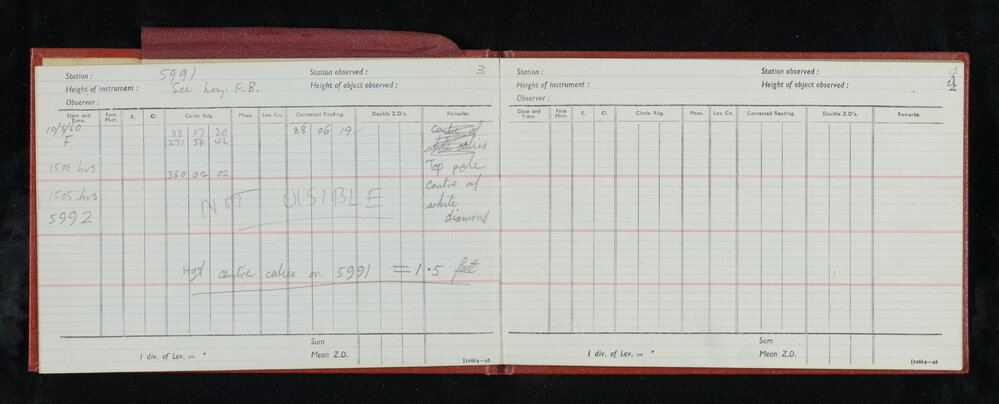 Station : 5991 Station observed : 3
Height of instrument : See hoz. F.B. Height of object observed :
Observer :
Date and Time. Face Micr. E. O. Circle Rdg. Mean. Lev. Cn. Corrected Reading. Double Z.D's. Remarks.
10/8/60 88 07 20 88 06 19 Centre of
F 271 54 42 white calico
1500 hrs Top pole
360 02 02
centre of
1505 hrs NOT VISIBLE white
5992 diamond
Hgt centre calico on 5991 = 1.5 feet
Sum
1 div. of Lev. = " Mean Z.D. [10664—46
Station : Station observed : 4
Height of instrument : Height of object observed :
Observer :
Date and Time. Face Micr. E. O. Circle Rdg. Mean. Lev. Cn. Corrected Reading. Double Z.D's. Remarks.
Sum
1 div. of Lev. = " Mean Z.D. [10664—46